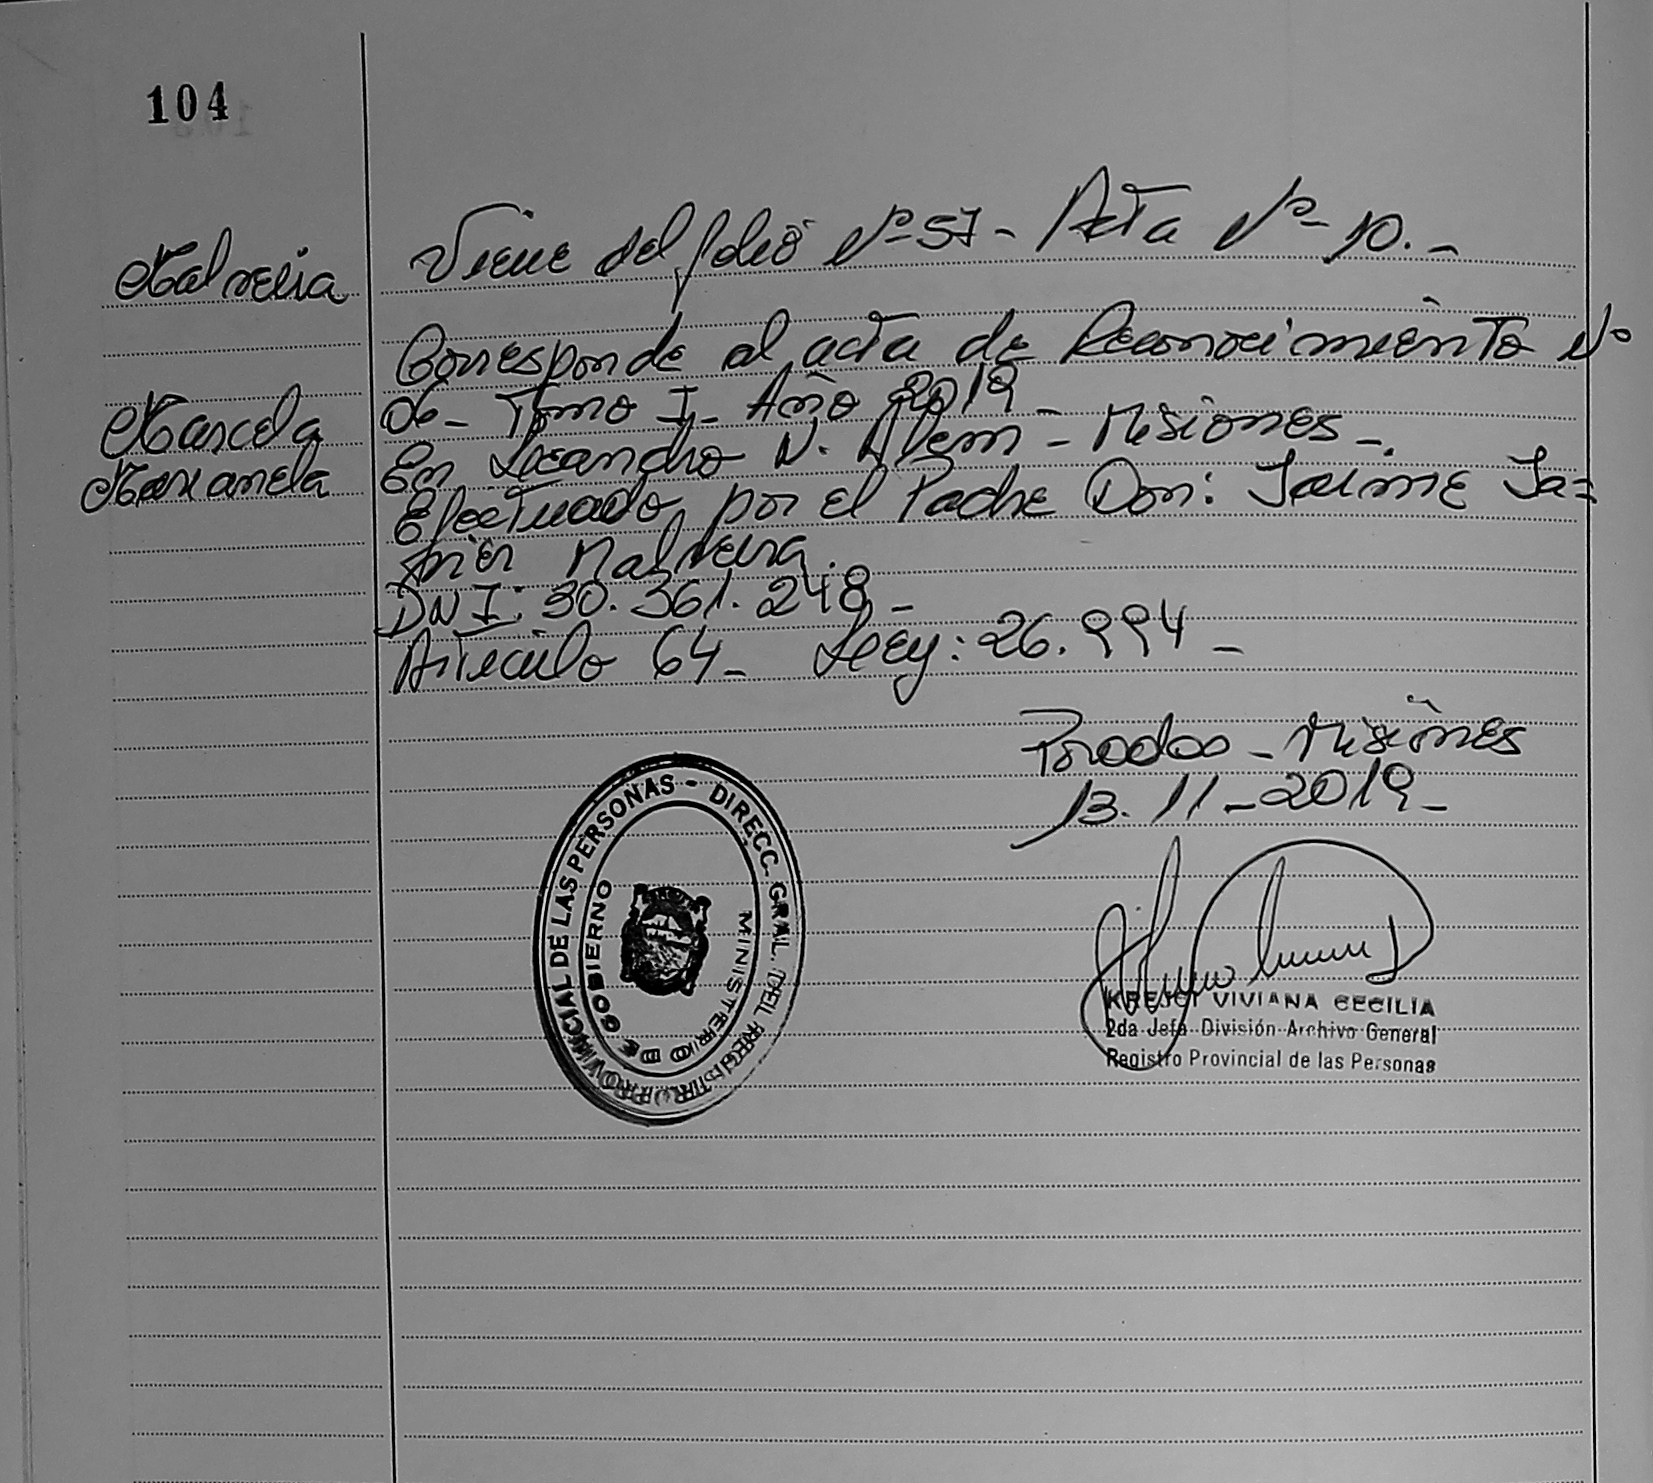 104
Malveira
Viene del folio Nº 57 - Acta Nº 10.-
Corresponde al acta de Reconocimiento Nº
Marcela
06- Tomo I- Año 2019-
Marianela
En Leandro N. Alem - Misiones-.
Efectuado por el Padre Don: Jaime Ja=
vier Malveira.
DNI: 30.361.248-
Artículo 64- Ley: 26.994-
Posadas - Misiones
13.11-2019-
DIRECC. GRAL. DEL REGISTRO PROVINCIAL DE LAS PERSONAS -
MINISTERIO DE GOBIERNO
KREJCI VIVIANA CECILIA
2da Jefa División Archivo General
Registro Provincial de las Personas